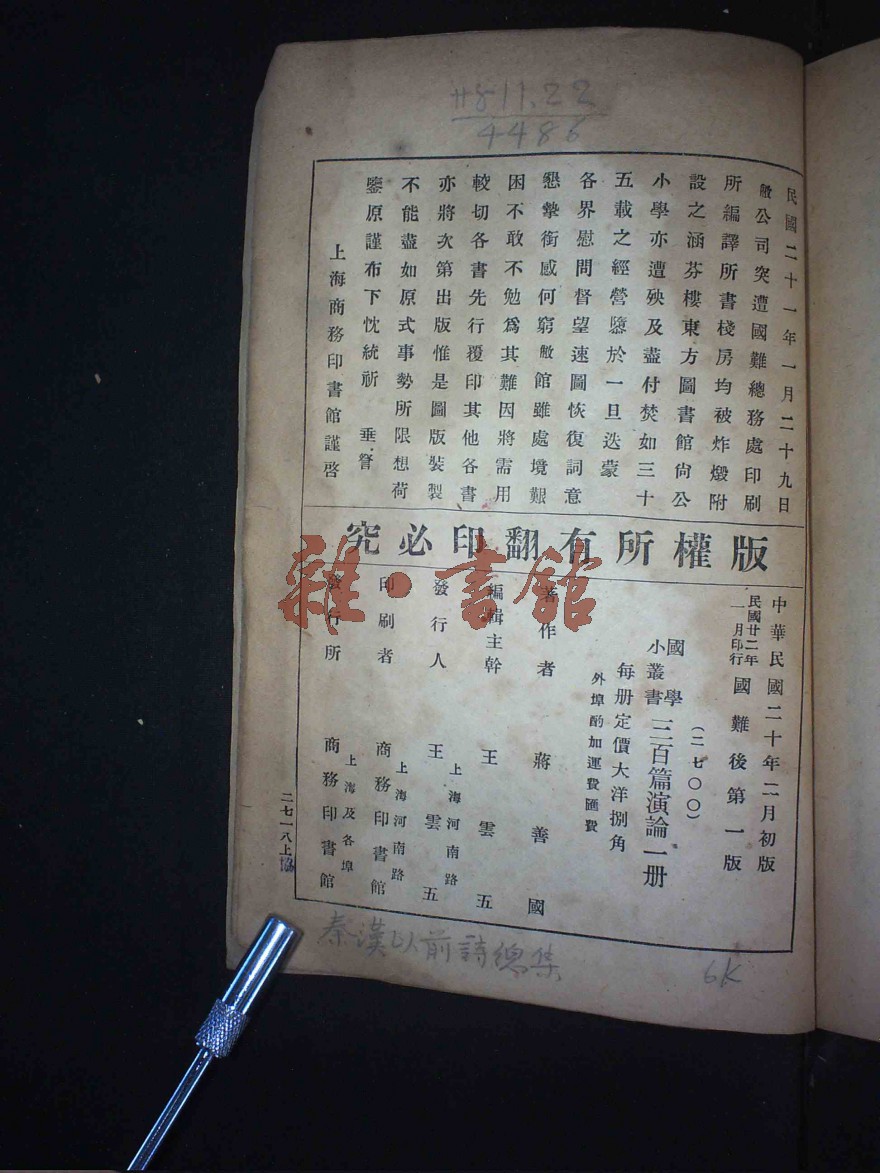 H811.22
4486
民國二十一年一月二十九日
敝公司突遭國難總務處印刷
所編譯所書棧房均被炸燬附
設之涵芬樓東方圖書館尙公
小學亦遭殃及盡付焚如三十
五載之經營隳於一旦迭蒙
各界慰問督望速圖恢復詞意
懇摯銜感何窮敝館雖處境艱
困不敢不勉爲其難因將需用
較切各書先行覆印其他各書
亦將次第出版惟是圖版裝製
不能盡如原式事勢所限想荷
鑒原謹布下忱統祈 垂詧
上海商務印書館謹啓
究必印翻有所權版
中華民國二十年二月初版
民國廿二年一月印行 國難後第一版
(二七〇〇)
國學小叢書 三百篇演論一册
每册定價大洋捌角
外埠酌加運費匯費
著作者 蔣善國
編輯主幹 王雲五
發行人 上海河南路 王雲五
印刷者 上海河南路 商務印書館
發行所 上海及各埠 商務印書館
二七一八上
協
雜·書館
秦漢以前詩總集
6K